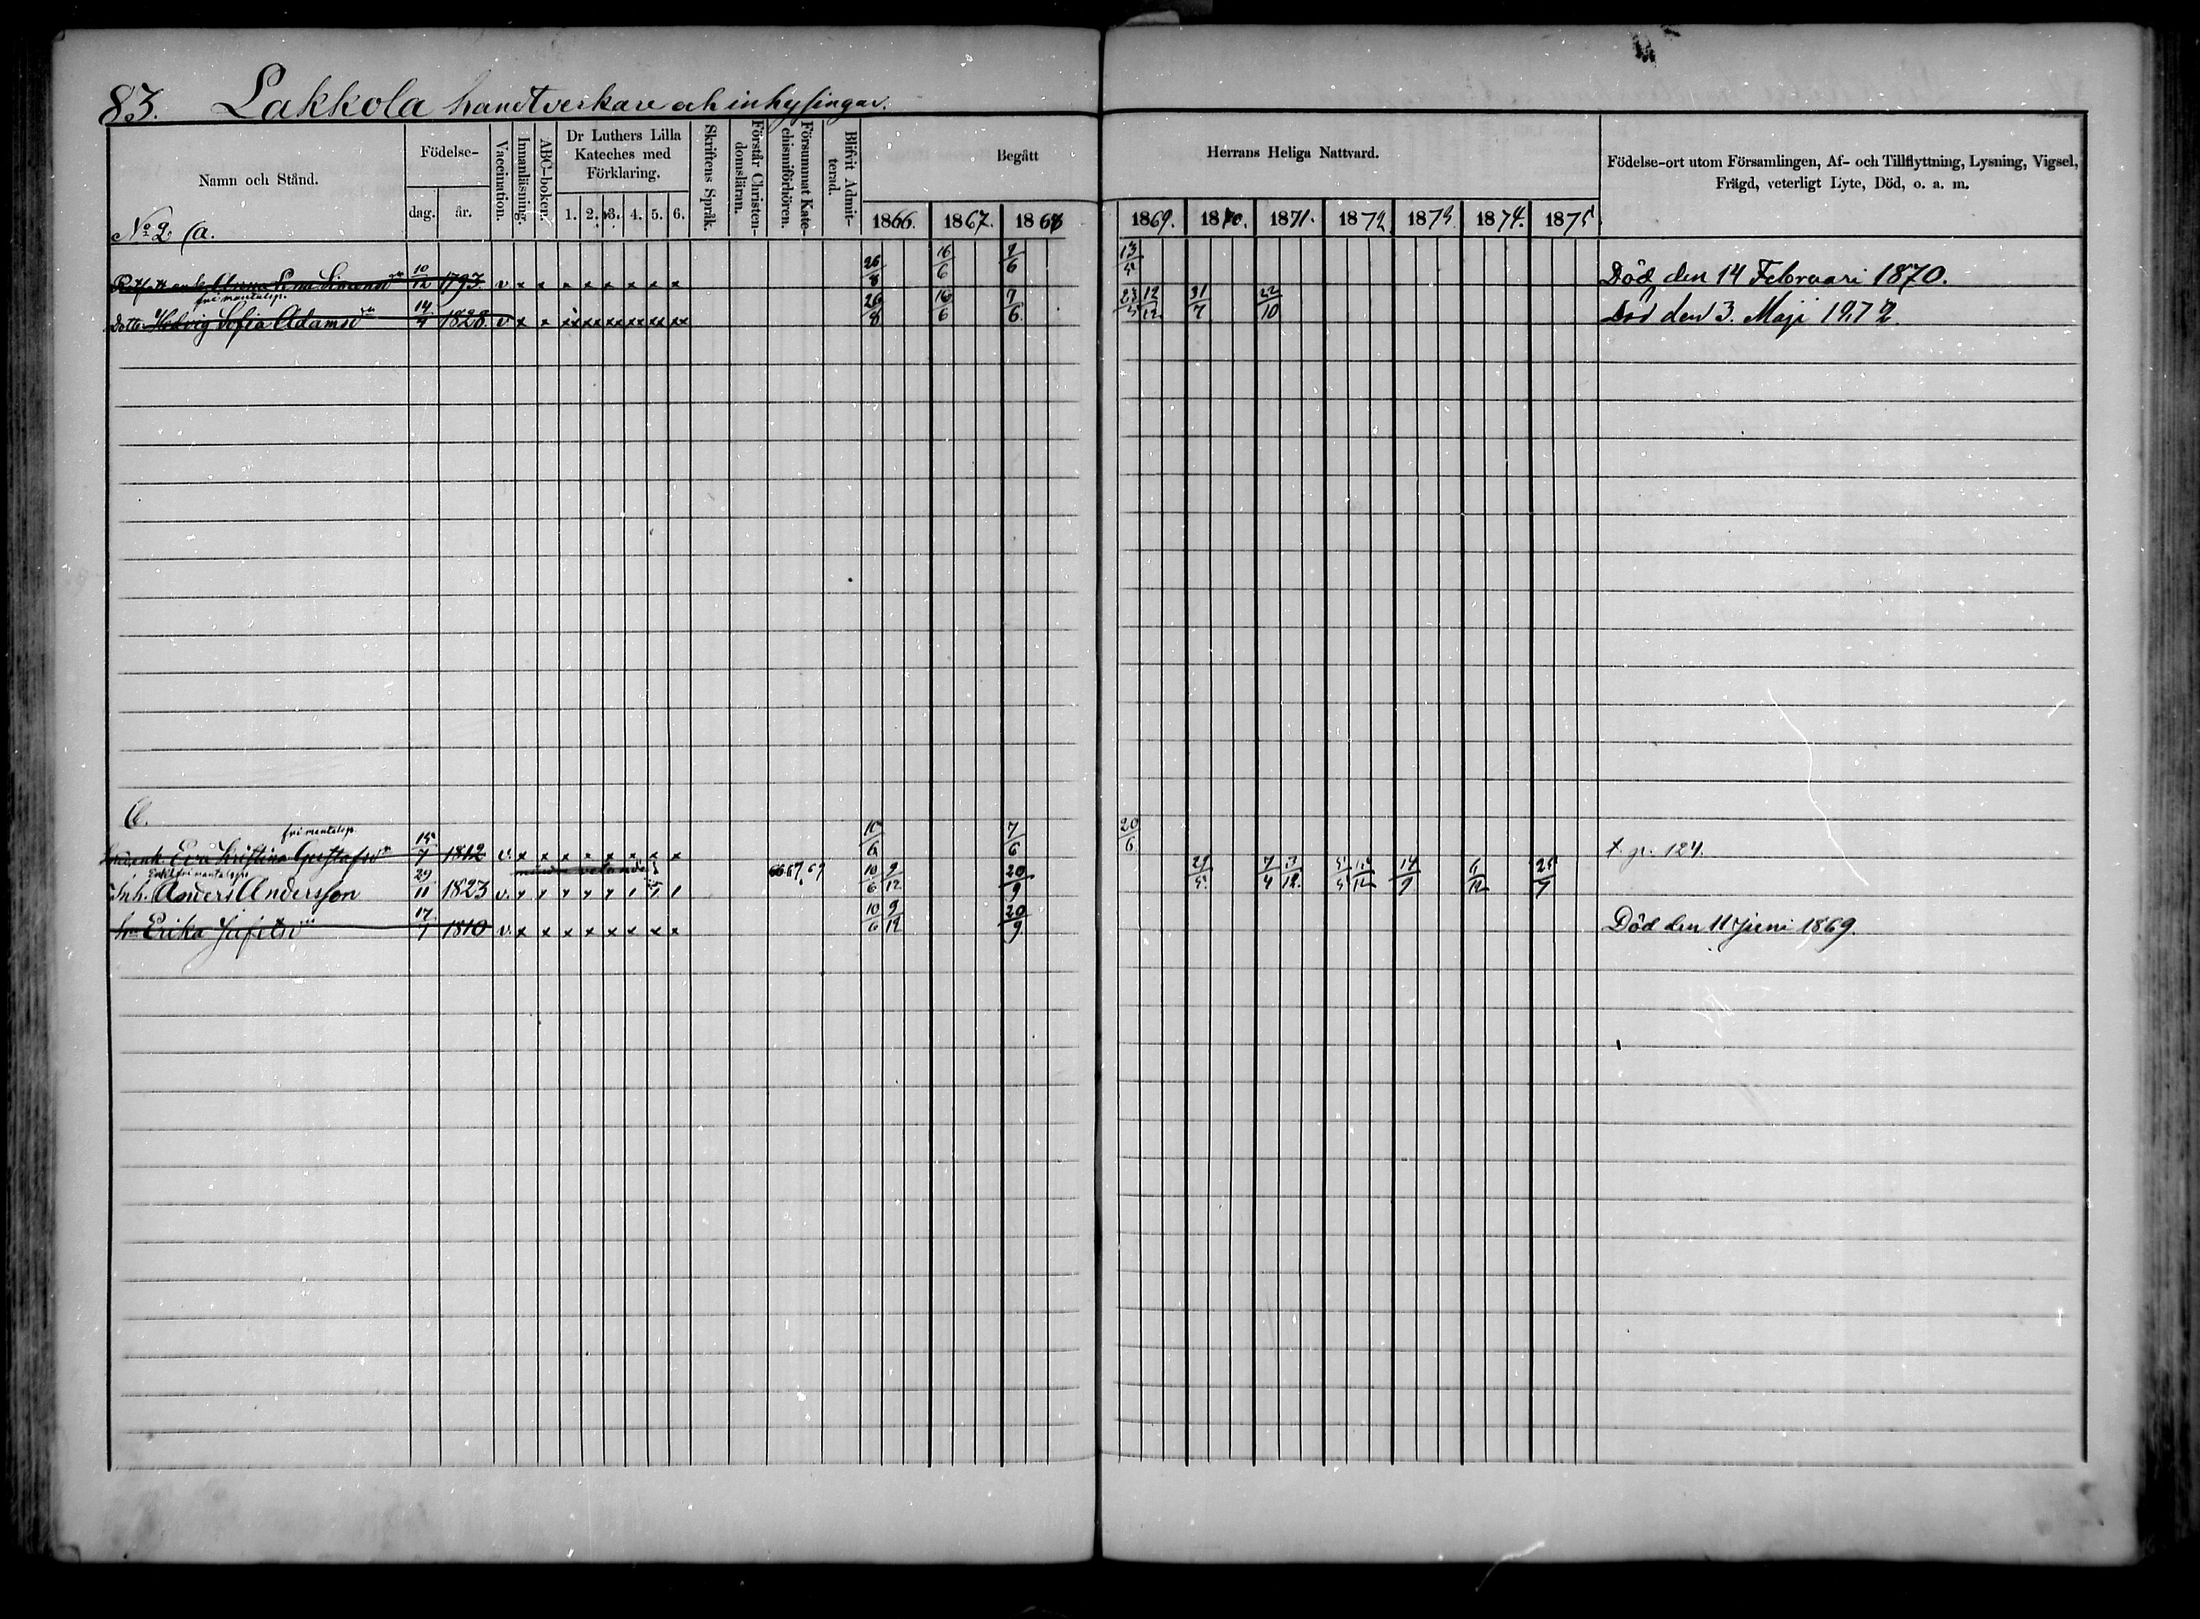 83. Lakkola handtverkare och inhysingar.
Namn och Stånd.
Födelse-
dag. år.
Vaccination.
Innanläsning.
ABC-boken.
Dr Luthers Lilla Kateches med Förklaring.
1. 2. 3. 4. 5. 6.
Skriftens Språk.
Förstår Christendomsläran.
Försummat Katechismiförhören.
Blifvit Admitterad.
Begått Herrans Heliga Nattvard.
1866. 1867. 1868 1869. 1870. 1871. 1872 1873 1874. 1875
Födelse-ort utom Församlingen, Af- och Tillflyttning, Lysning, Vigsel,
Frägd, veterligt Lyte, Död, o. a. m.
No 2 a.
10/12 1793 v x x x x x x x x 26/8 16/6 7/6 13/5 Död den 14 Februari 1870.
fri mantalsp.
Dotter Hedvig Sofia Adamsdr 14/4 1828 v x x xx xx xx xx xx xx 26/8 16/6 7/6 23/5 12/12 31/7 22/10 Död den 3. Maji 1872.
fri mantalsp.
Eva Kristina Gustafsdr 15/7 1812 v. x x x x x x x x 10/6 7/6 20/6 t. p. 124.
fri mantalsp.
Inh. Anders Andersson 29/11 1823 v. 66 67, 69 10/6 9/12 20/9 29/5 7/4 3/12 5/5 15/12 14/9 6/12 25/7
hu Erika Jafetsdr 17/1 1810 v. x x x x x x x x 10/6 9/12 20/9 Död den 11 Juni 1869.